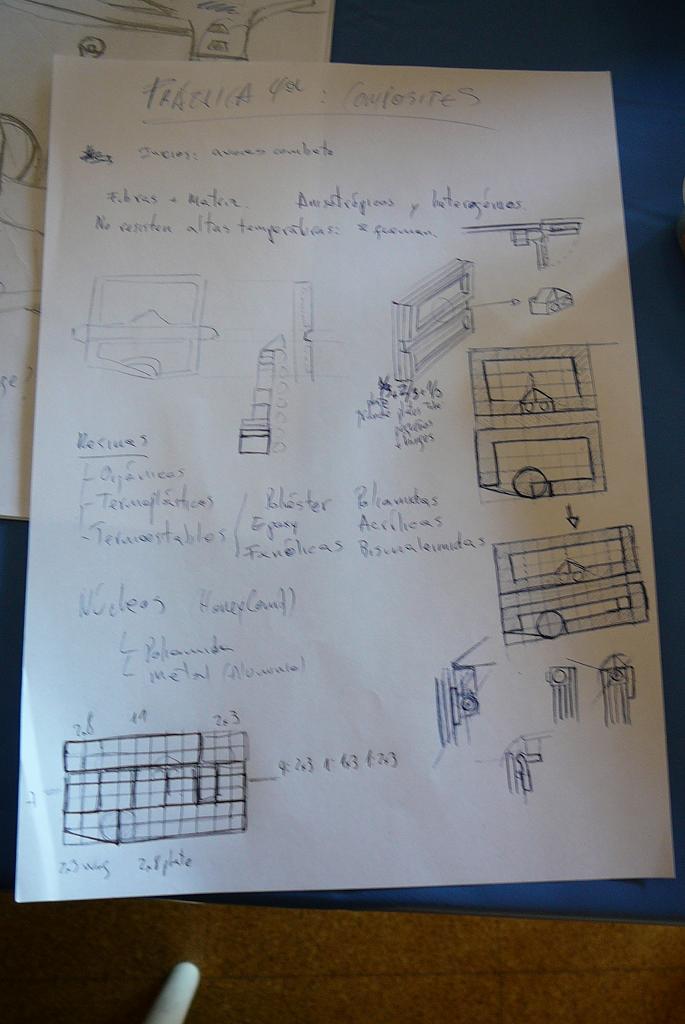 PRÁCTICA 4ª : COMPOSITES
Inicios: aviones combate
Fibras + Matriz. Anisotrópicos y heterogéneos.
No resisten altas temperaturas: se queman.
plate
Resinas
Orgánicas
Termoplásticas
Termoestables
Poliéster Poliamidas
Epoxy Acrílicas
Fenólicas Bismaleimidas
Núcleos HoneyComb
Poliamida
Metal (Aluminio)
2x8 2x3
4: 2x3 1: 1x3 1: 2x3
2x3 wing 2x8 plate